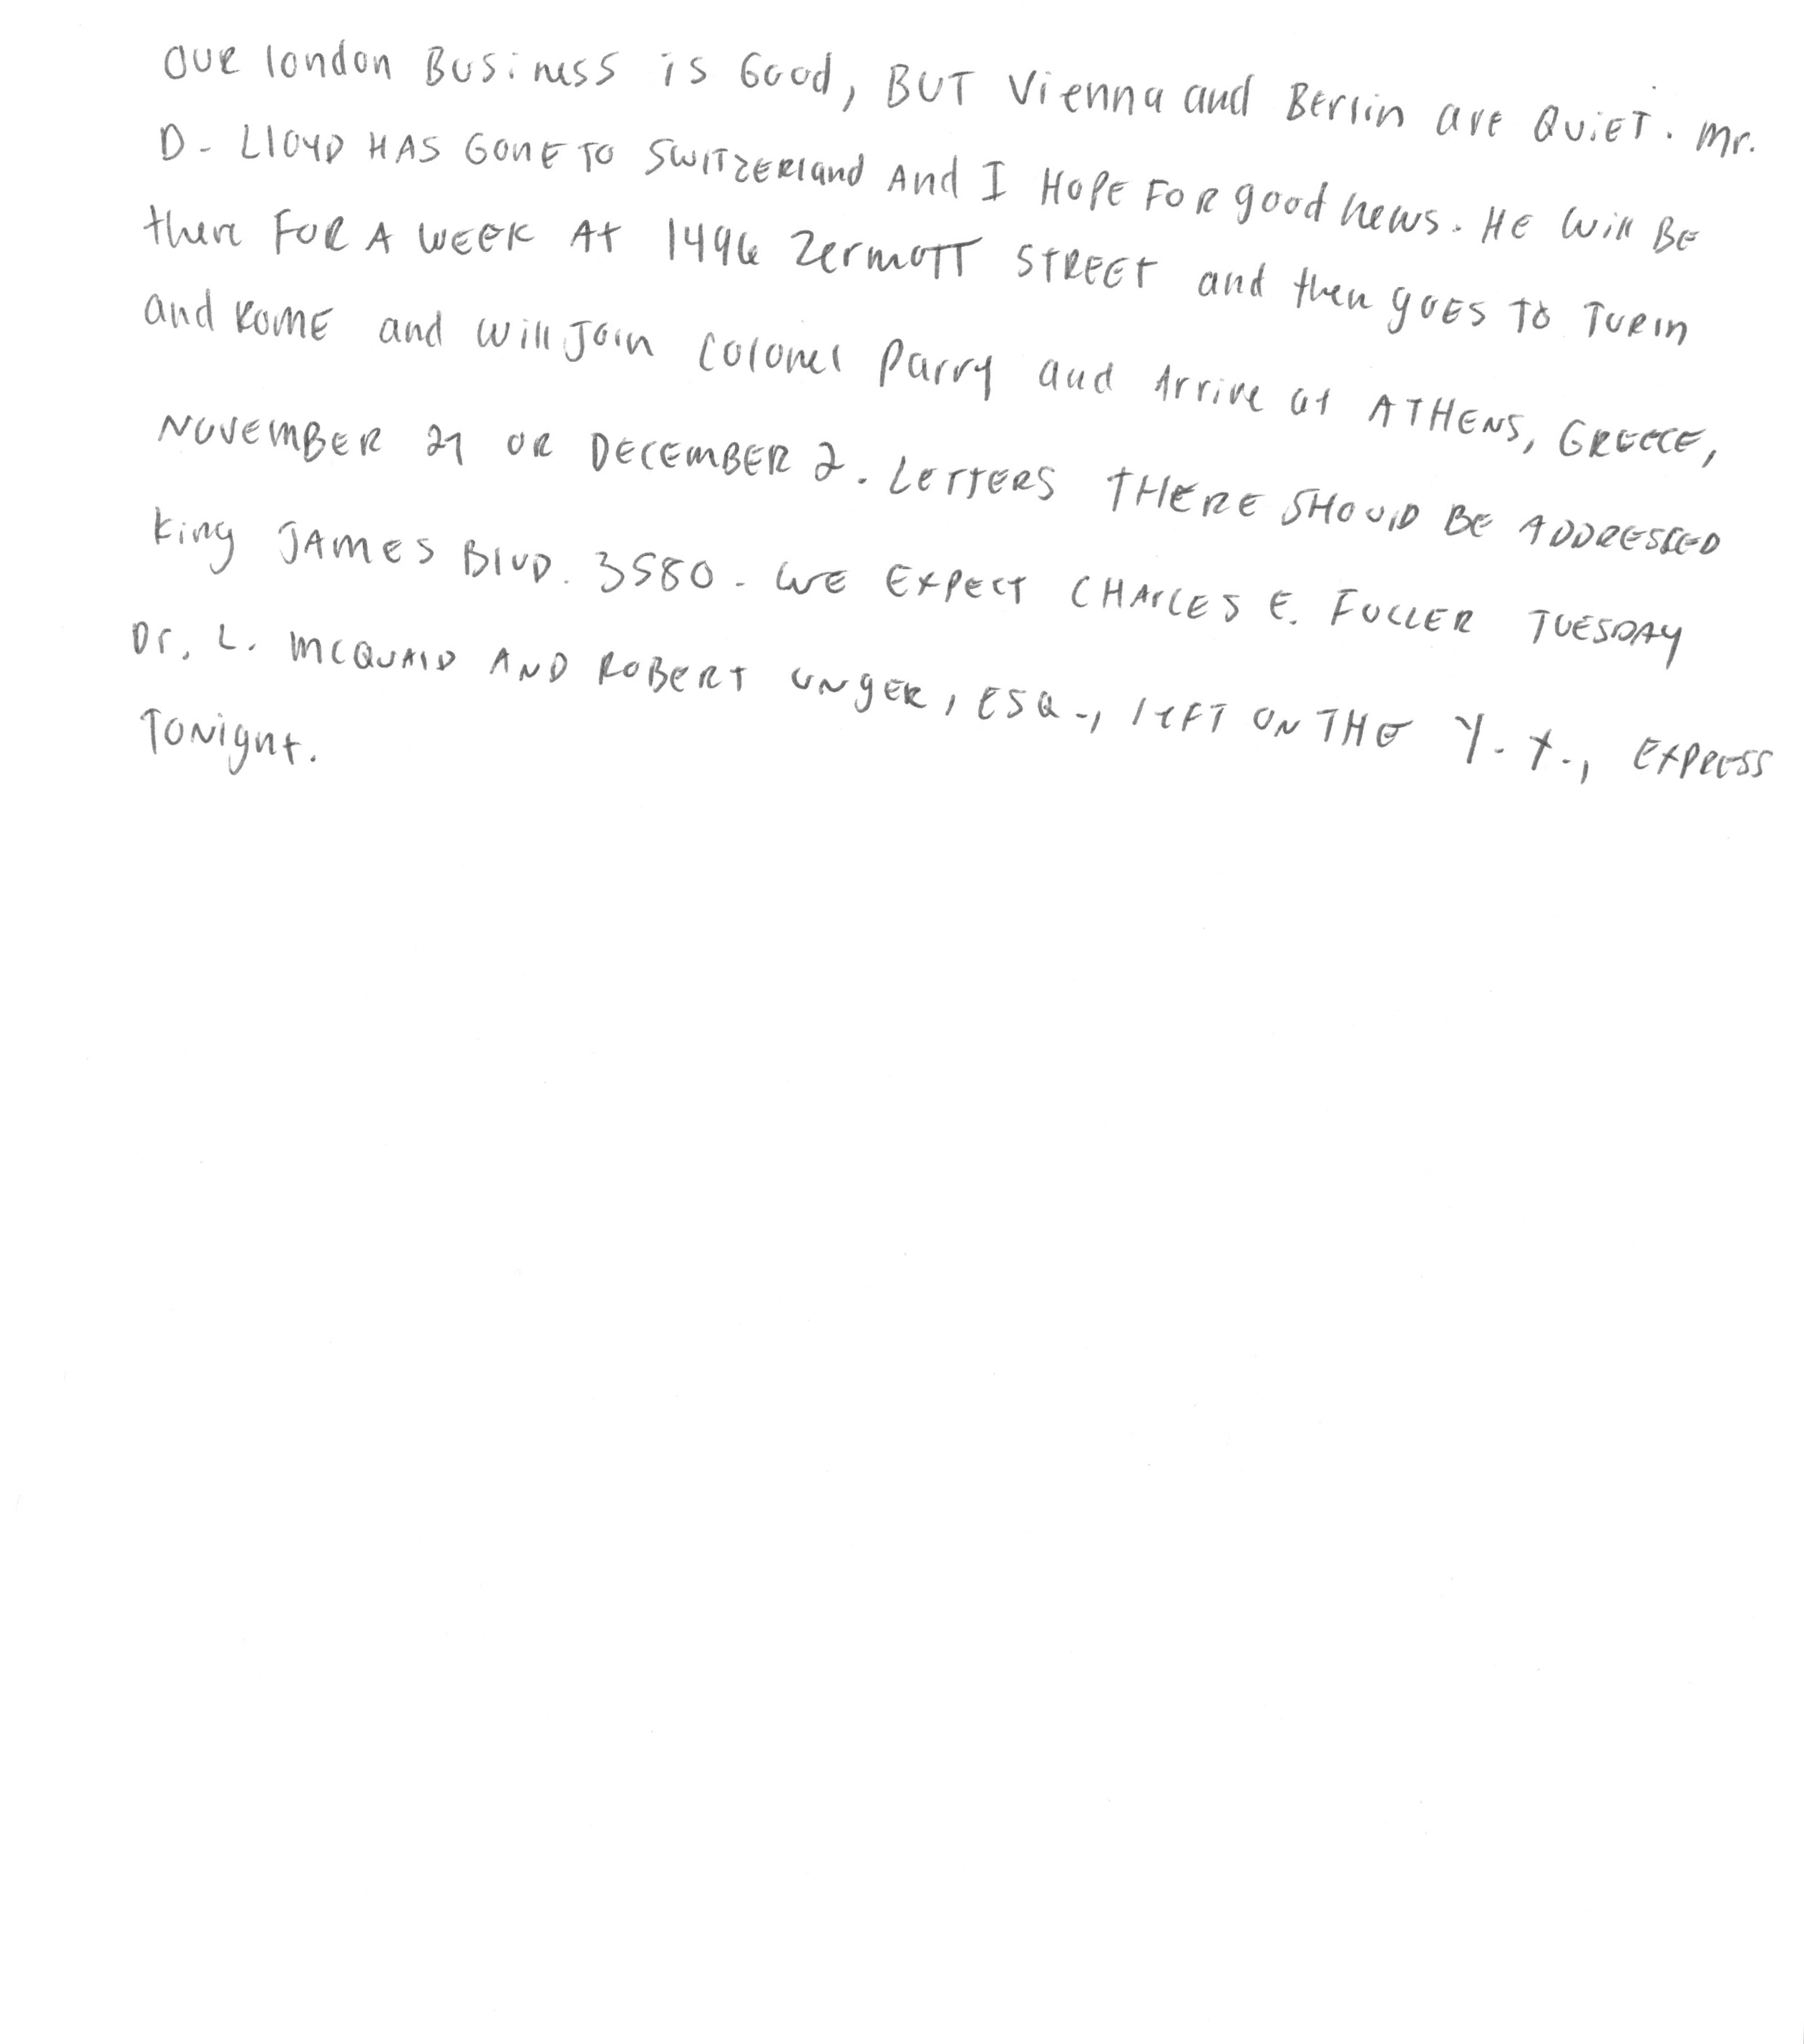 OUR london BUSiness is Good, BUT Vienna and Berlin are QUiET. Mr.
D. LlOYD HAS GONE TO SWITZERland And I HOPE FOR good news. HE Will BE
there FOR A WEEK At 1496 Zermott STREEt and then gOES TO TURIN
and ROME and Will Join Colonel Parry and Arrive at ATHENS, GREECE,
NOVEMBER 27 OR DECEMBER 2. LETTERS THERE SHOUlD BE ADDRESSED
King JAMES BlVD. 3580. WE EXPECT CHArLES E. FULLER TUESDAY
Dr. L. MCQUAID AND ROBERT UNgER, ESQ., lEFT ON THE Y. X., EXPRESS
TONight.